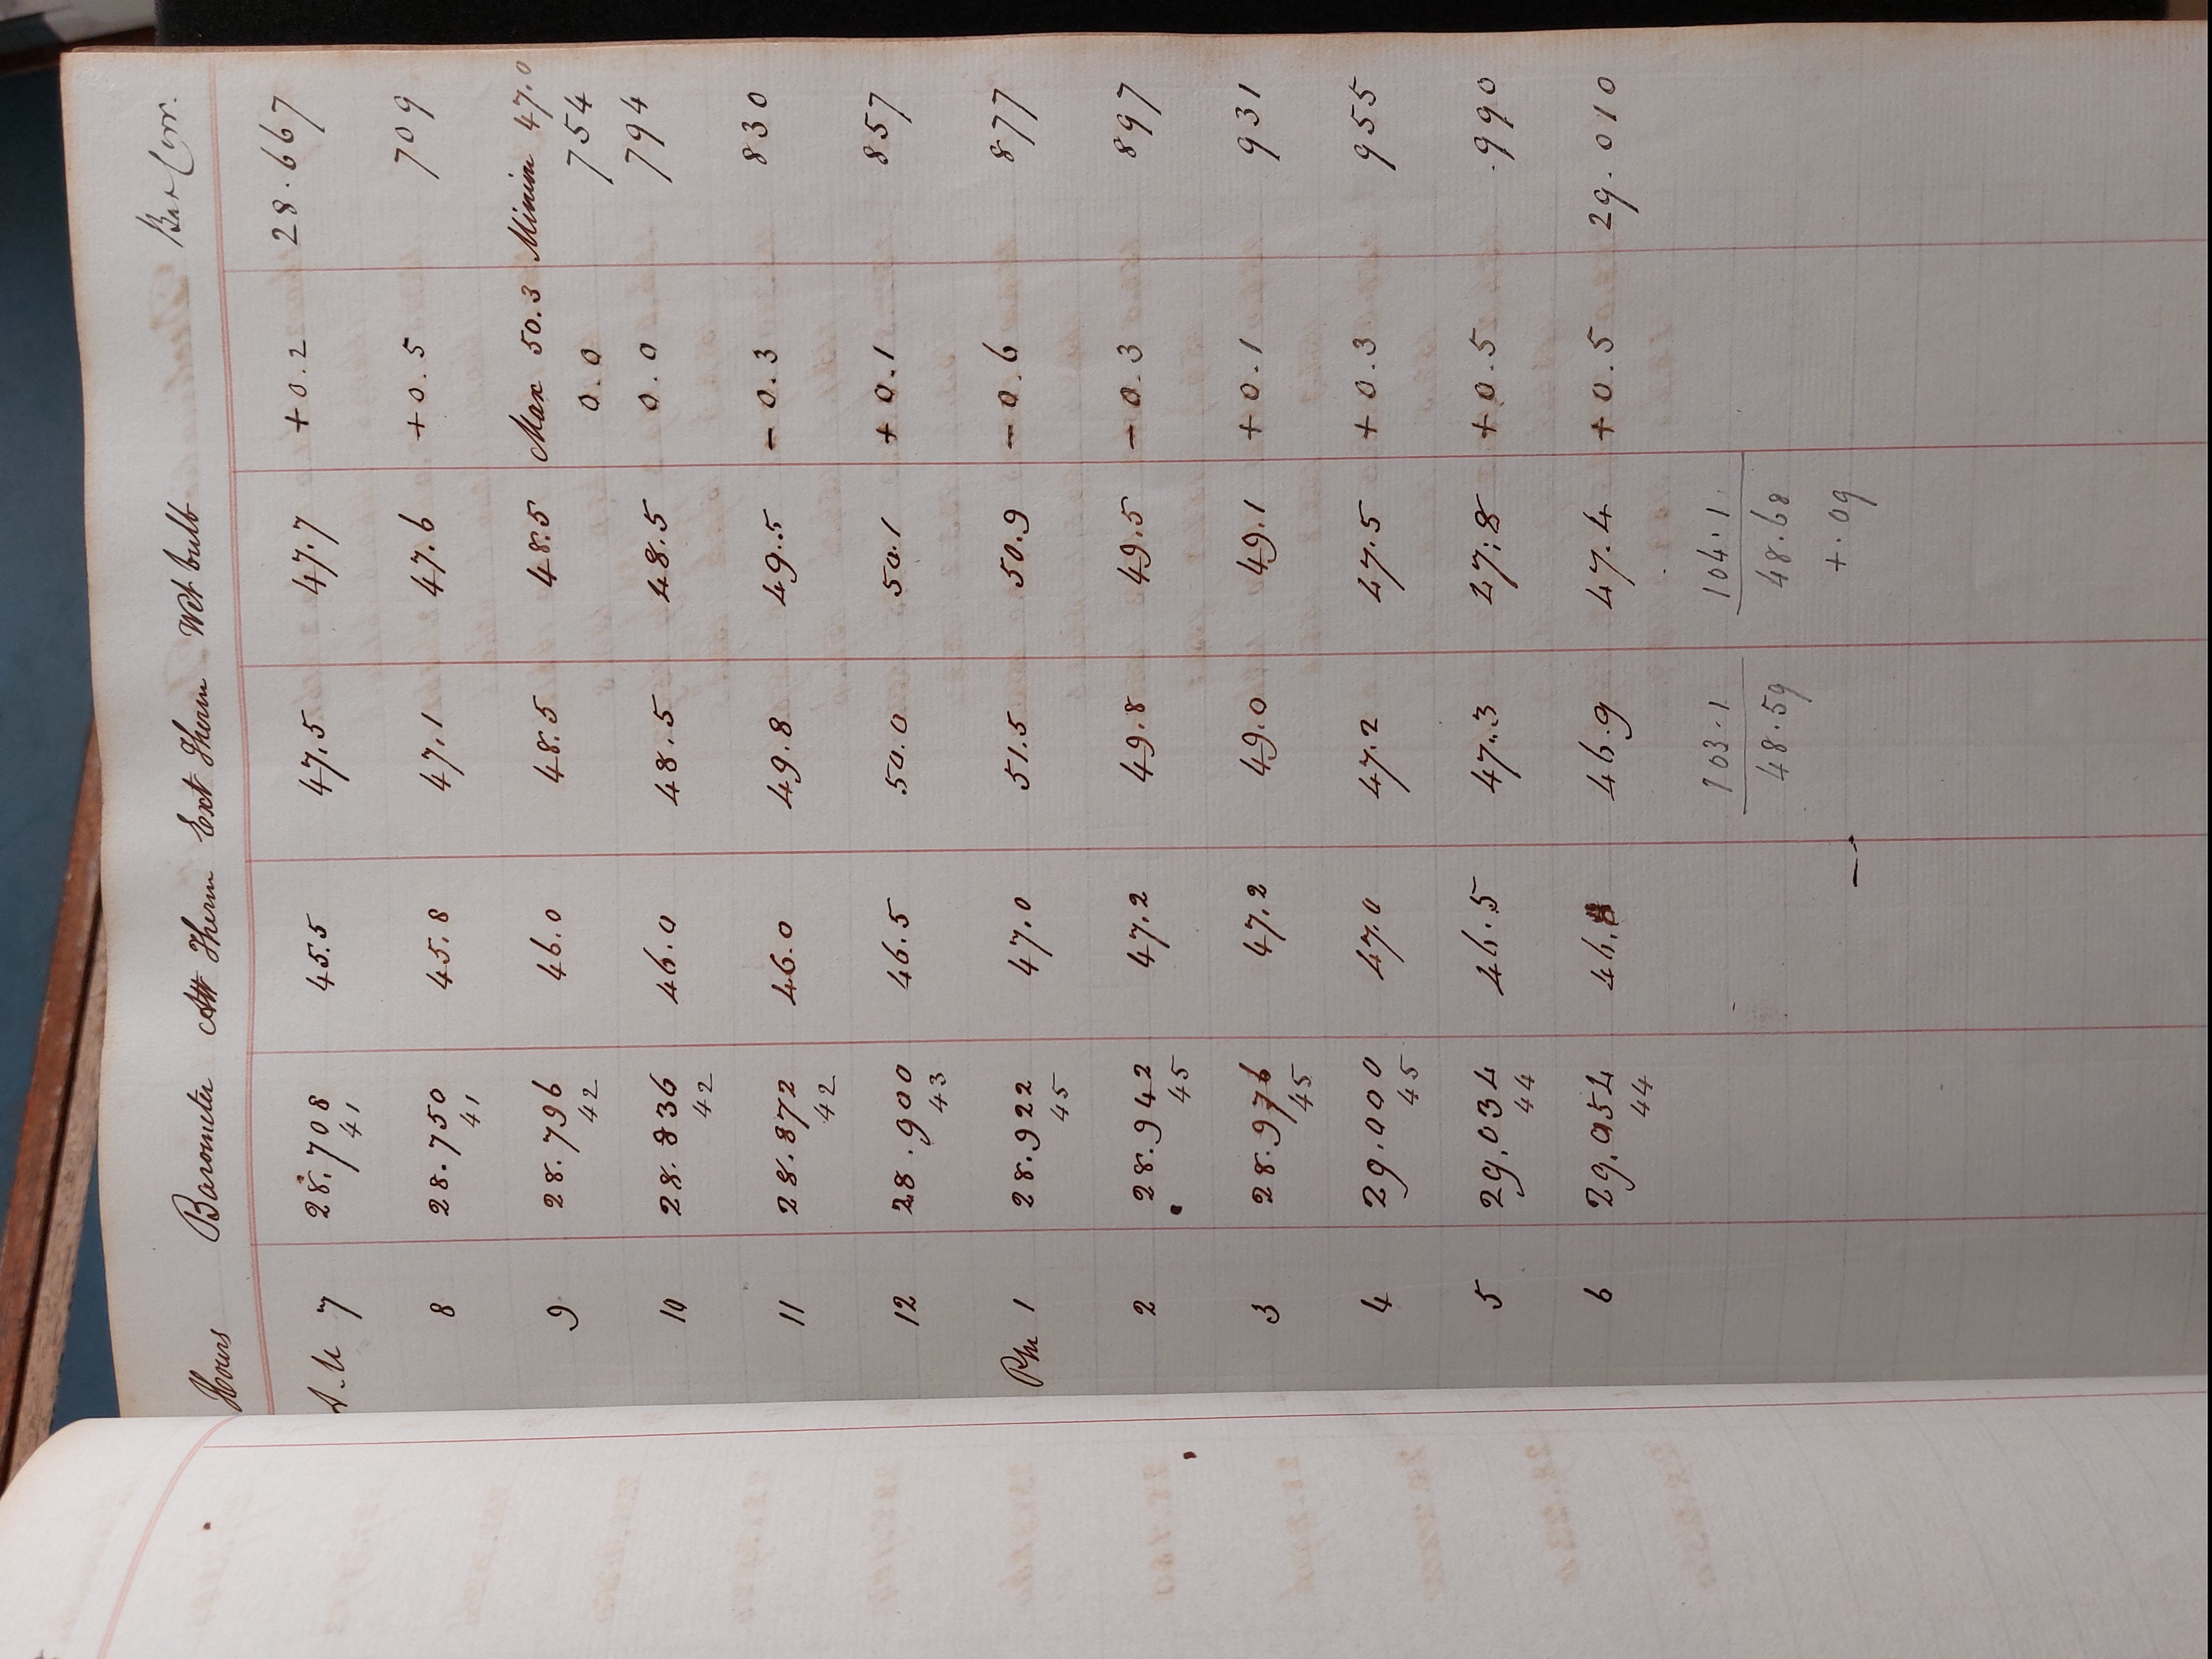 Hours Barometer Att Therm Ext Therm Wet bulb Bar Corr.
A.M 7 28.708 45.5 47.5 47.7 +0.2 28.667
41
8 28.750 45.8 47.1 47.6 +0.5 709
41
9 28.796 46.0 48.5 48.5 Max 50.3 Minim 47.0
42 0.0 754
10 28.836 46.0 48.5 48.5 0.0 794
42
11 28.872 46.0 49.8 49.5 - 0.3 830
42
12 28.900 46.5 50.0 50.1 + 0.1 857
43
Pm 1 28.922 47.0 51.5 50.9 - 0.6 877
45
2 28.942 47.2 49.8 49.5 - 0.3 897
45
3 28.976 47.2 49.0 49.1 + 0.1 931
45
4 29.000 47.0 47.2 47.5 + 0.3 955
45
5 29.034 46.5 47.3 47.8 + 0.5 .990
44
6 29.054 46. 46.9 47.4 + 0.5 29.010
44
103.1 104.1
48.59 48.68
+.09